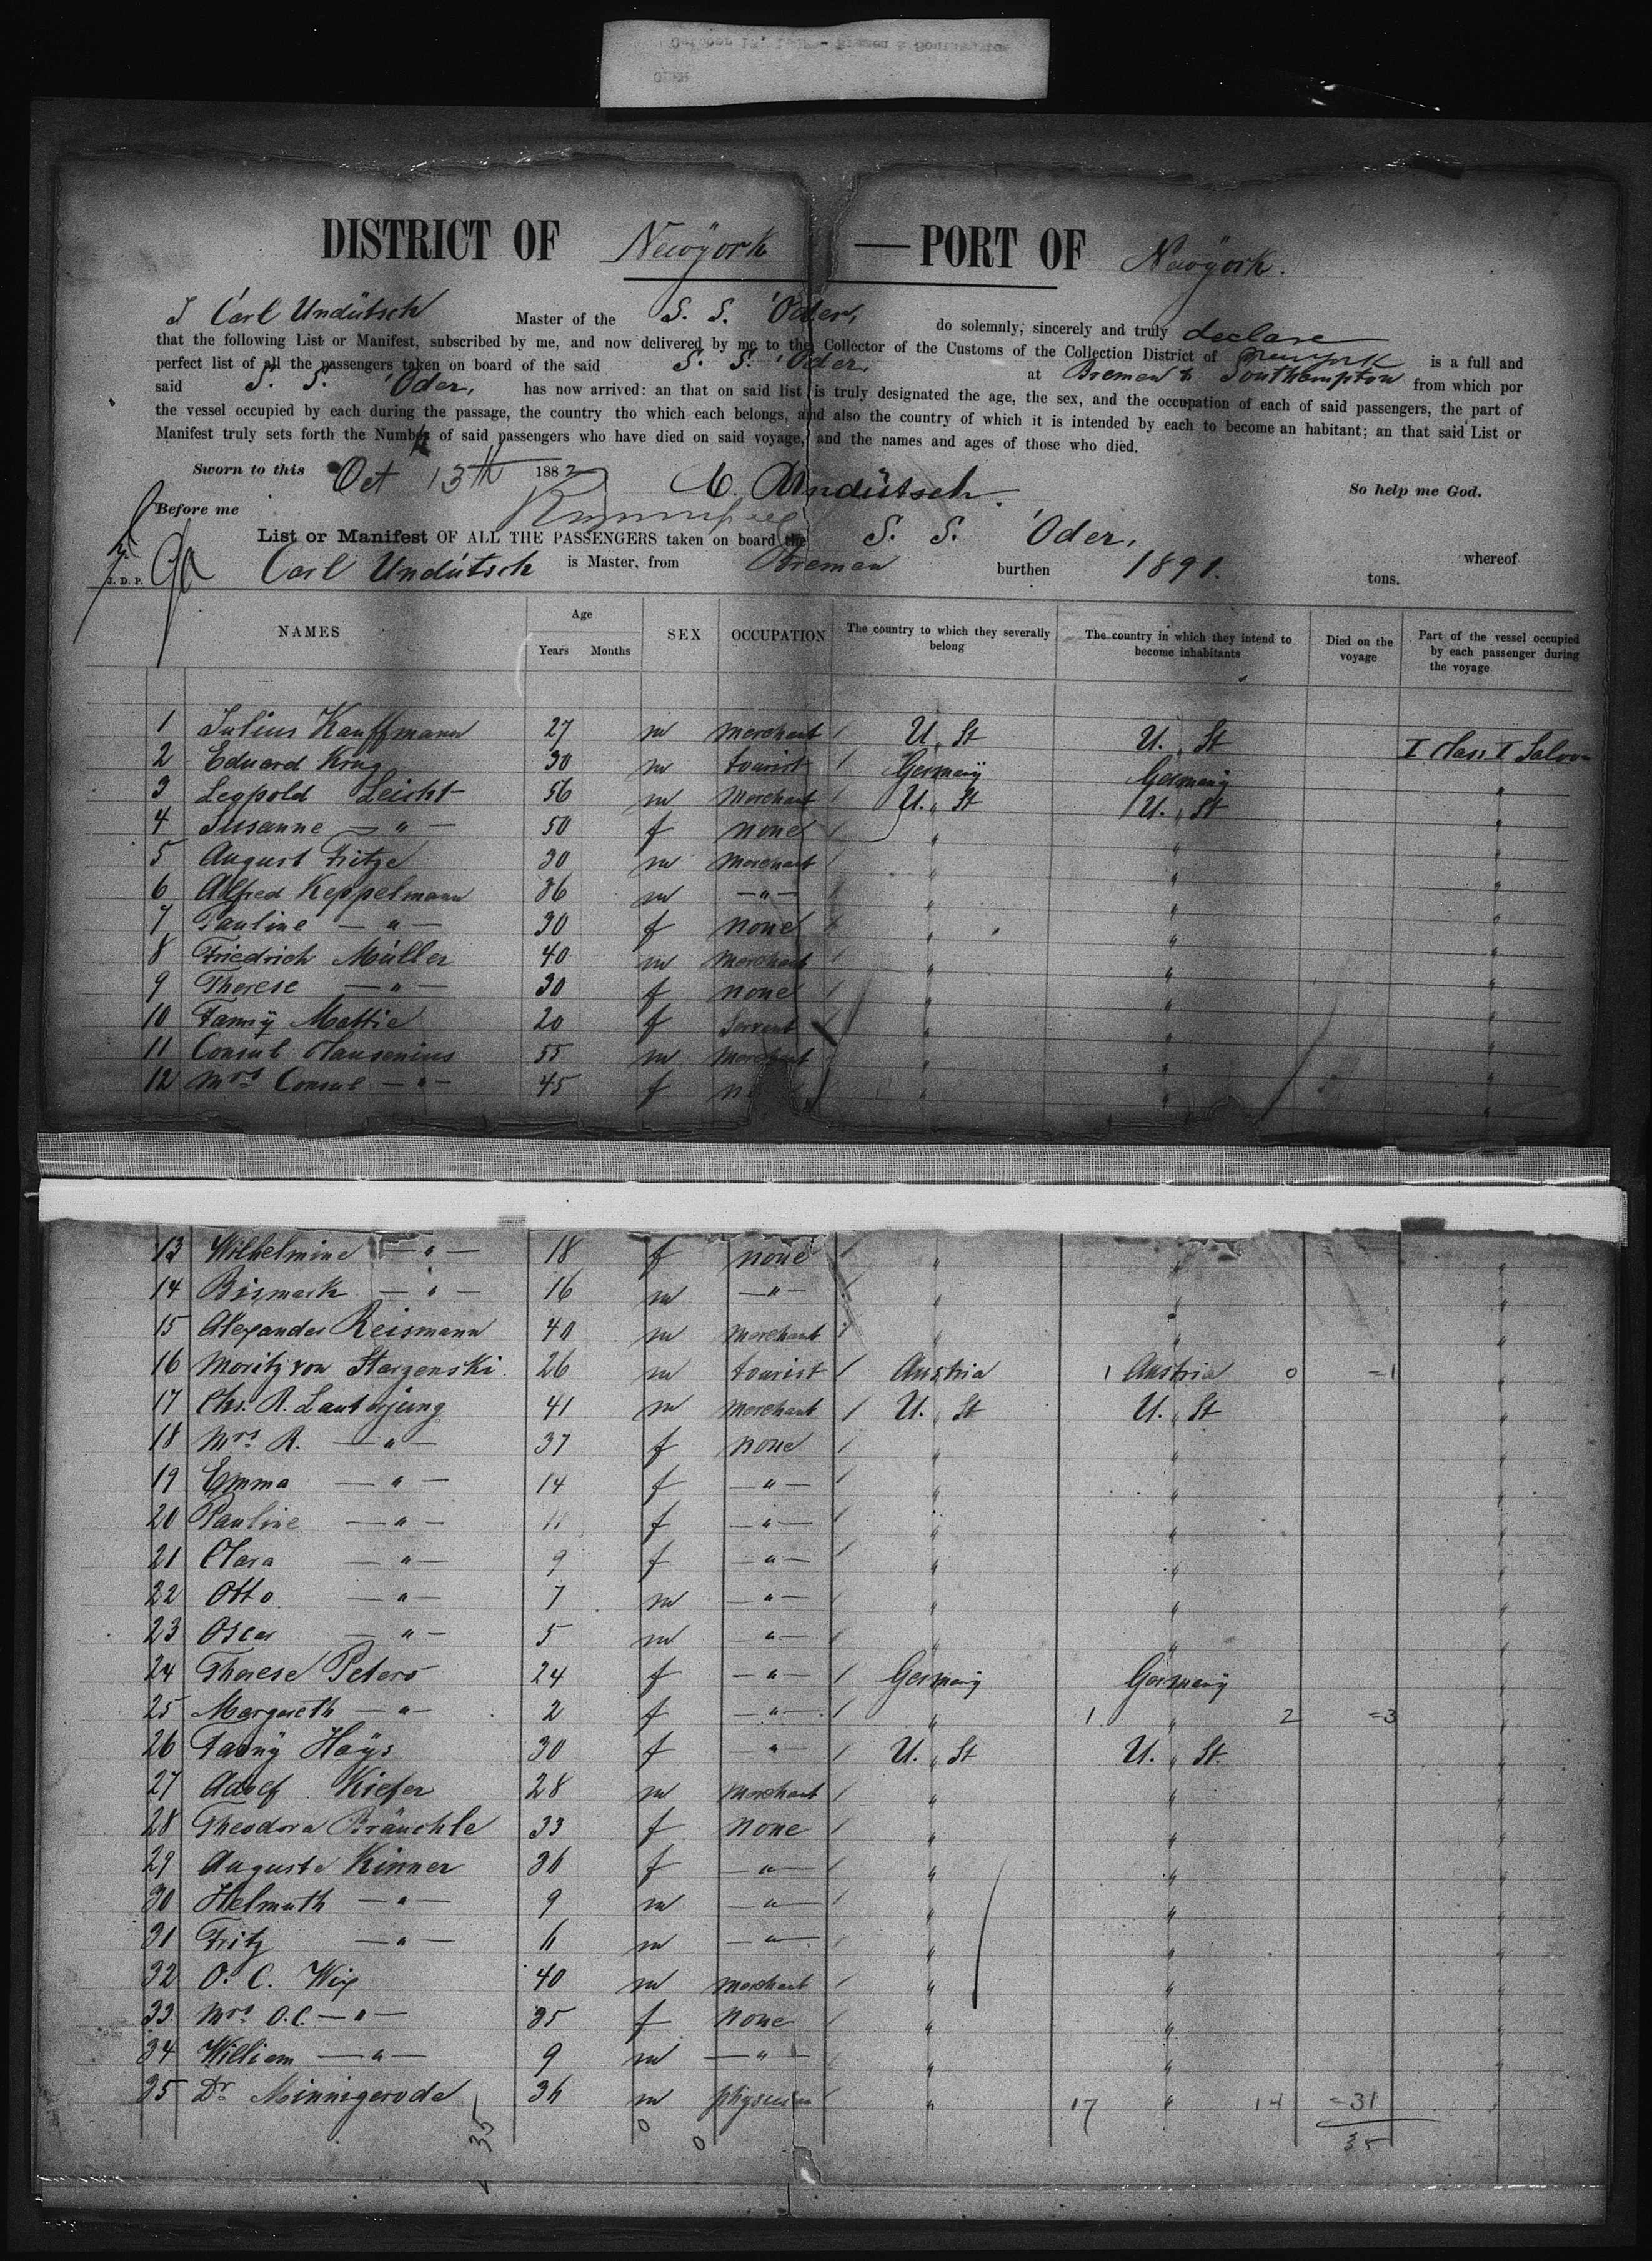 DISTRICT OF Newÿork — PORT OF Newÿork.
I Carl Undütsch Master of the S. S. 'Oder, do solemnly, sincerely and truly declare
that the following List or Manifest, subscribed by me, and now delivered by me to the Collector of the Customs of the Collection District of Newyork is a full and
perfect list of all the passengers taken on board of the said S. S. 'Oder, at Bremen & Southampton from which por
said S. S. 'Oder, has now arrived: an that on said list is truly designated the age, the sex, and the occupation of each of said passengers, the part of
the vessel occupied by each during the passage, the country tho which each belongs, and also the country of which it is intended by each to become an habitant; an that said List or
Manifest truly sets forth the Number of said passengers who have died on said voyage, and the names and ages of those who died.
Sworn to this Oct 13th 1882 C. Undütsch. So help me God.
Before me
List or Manifest OF ALL THE PASSENGERS taken on board the S. S. 'Oder, whereof
J. D. P. Carl Undütsch is Master, from Bremen burthen 1891. tons.
NAMES Age Years Months SEX OCCUPATION The country to which they severally belong The country in which they intend to become inhabitants Died on the voyage Part of the vessel occupied by each passenger during the voyage
1 Julius Kauffmann 27 m merchant / U. St U. St I class I Saloon
2 Eduard Krug 30 m tourist / Germanÿ Germanÿ "
3 Leopold Leicht 56 m Merchant / U. St U. St "
4 Susanne — " — 50 f none / " " "
5 August Fritze 30 m merchant / " " "
6 Alfred Keppelmann 36 m — " — / " " "
7 Pauline — " — 30 f none / " " "
8 Friedrich Müller 40 m merchant / " " "
9 Therese — " — 30 f none / " " "
10 Fanny Mattie 20 f Servant / " " "
11 Consul Clausenius 55 m merchant / " " "
12 Mrs Consul — " — 45 f " " "
13 Wilhelmine — " — 18 f none / " " "
14 Bismark — " — 16 m — " — / " " "
15 Alexander Reismann 40 m merchant / " " "
16 Moritz von Starzenski 26 m tourist / Austria 1 Austria 0 =1 "
17 Chs. R. Lauterjung 41 m merchant / U. St U. St "
18 Mrs R. — " — 37 f none / " " "
19 Emma — " — 14 f — " — / " " "
20 Pauline — " — 11 f — " — / " " "
21 Clara — " — 9 f — " — / " " "
22 Otto — " — 7 m — " — / " " "
23 Oscar — " — 5 m — " — / " " "
24 Therese Peters 24 f — " — / Germanÿ Germanÿ "
25 Margareth — " — 2 f — " — / " 1 " 2 =3 "
26 Fanny Haÿs 30 f — " — / U. St U. St. "
27 Adolf Kiefer 28 m merchant / " " "
28 Theodora Bräuchle 33 f none / " " "
29 Auguste Kinner 36 f — " — / " " "
30 Helmuth — " — 9 m — " — / " " "
31 Fritz — " — 6 m — " — / " " "
32 O. C. Wix 40 m merchant / " " "
33 Mrs O.C. — " — 35 f none / " " "
34 William — " — 9 m — " — / " " "
35 Dr. Minnigerode 36 m physician / " 17 " 14 =31 "
35 0 0 35